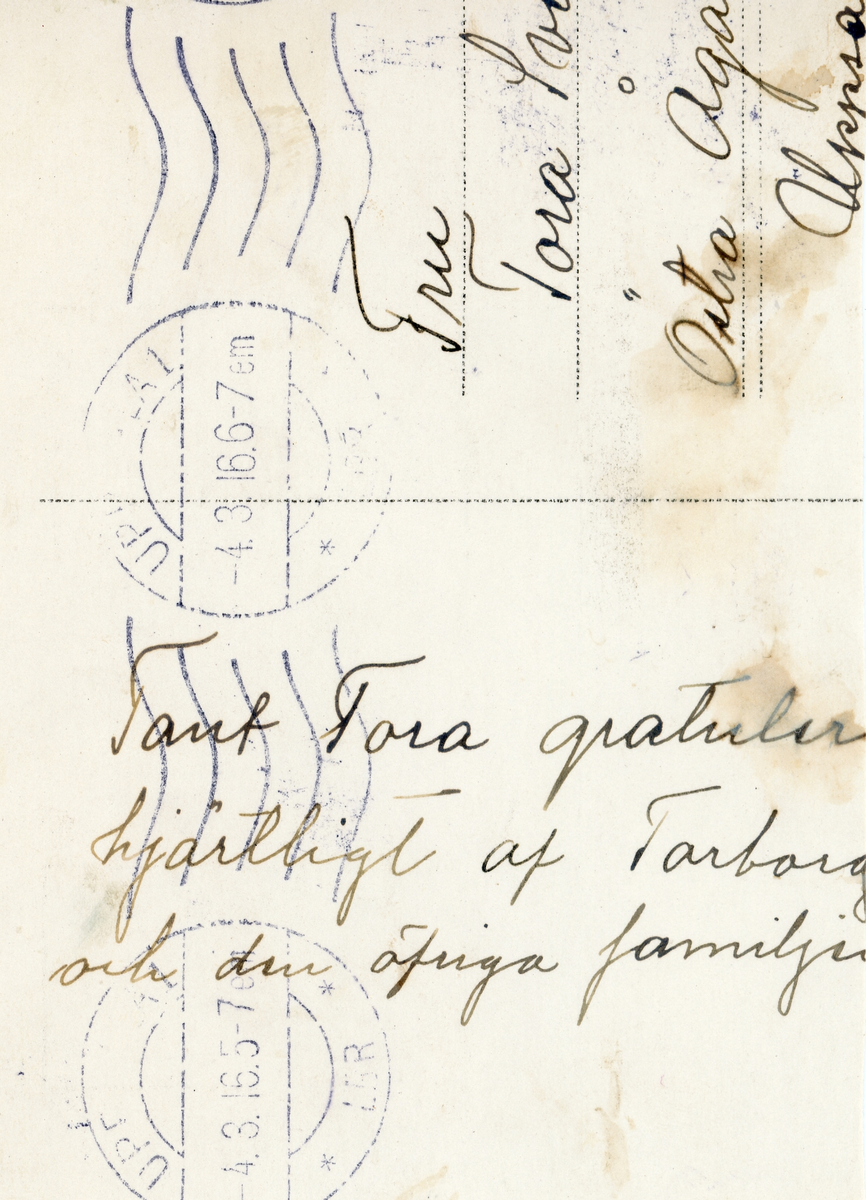 Fru
Tora
Östra Åga
Uppsa
-4.3.16.6-7 em
Tant Tora gratuler
hjärtligt af Torborg
och den öfriga familje
-4.3.16.5-7 e
LBR